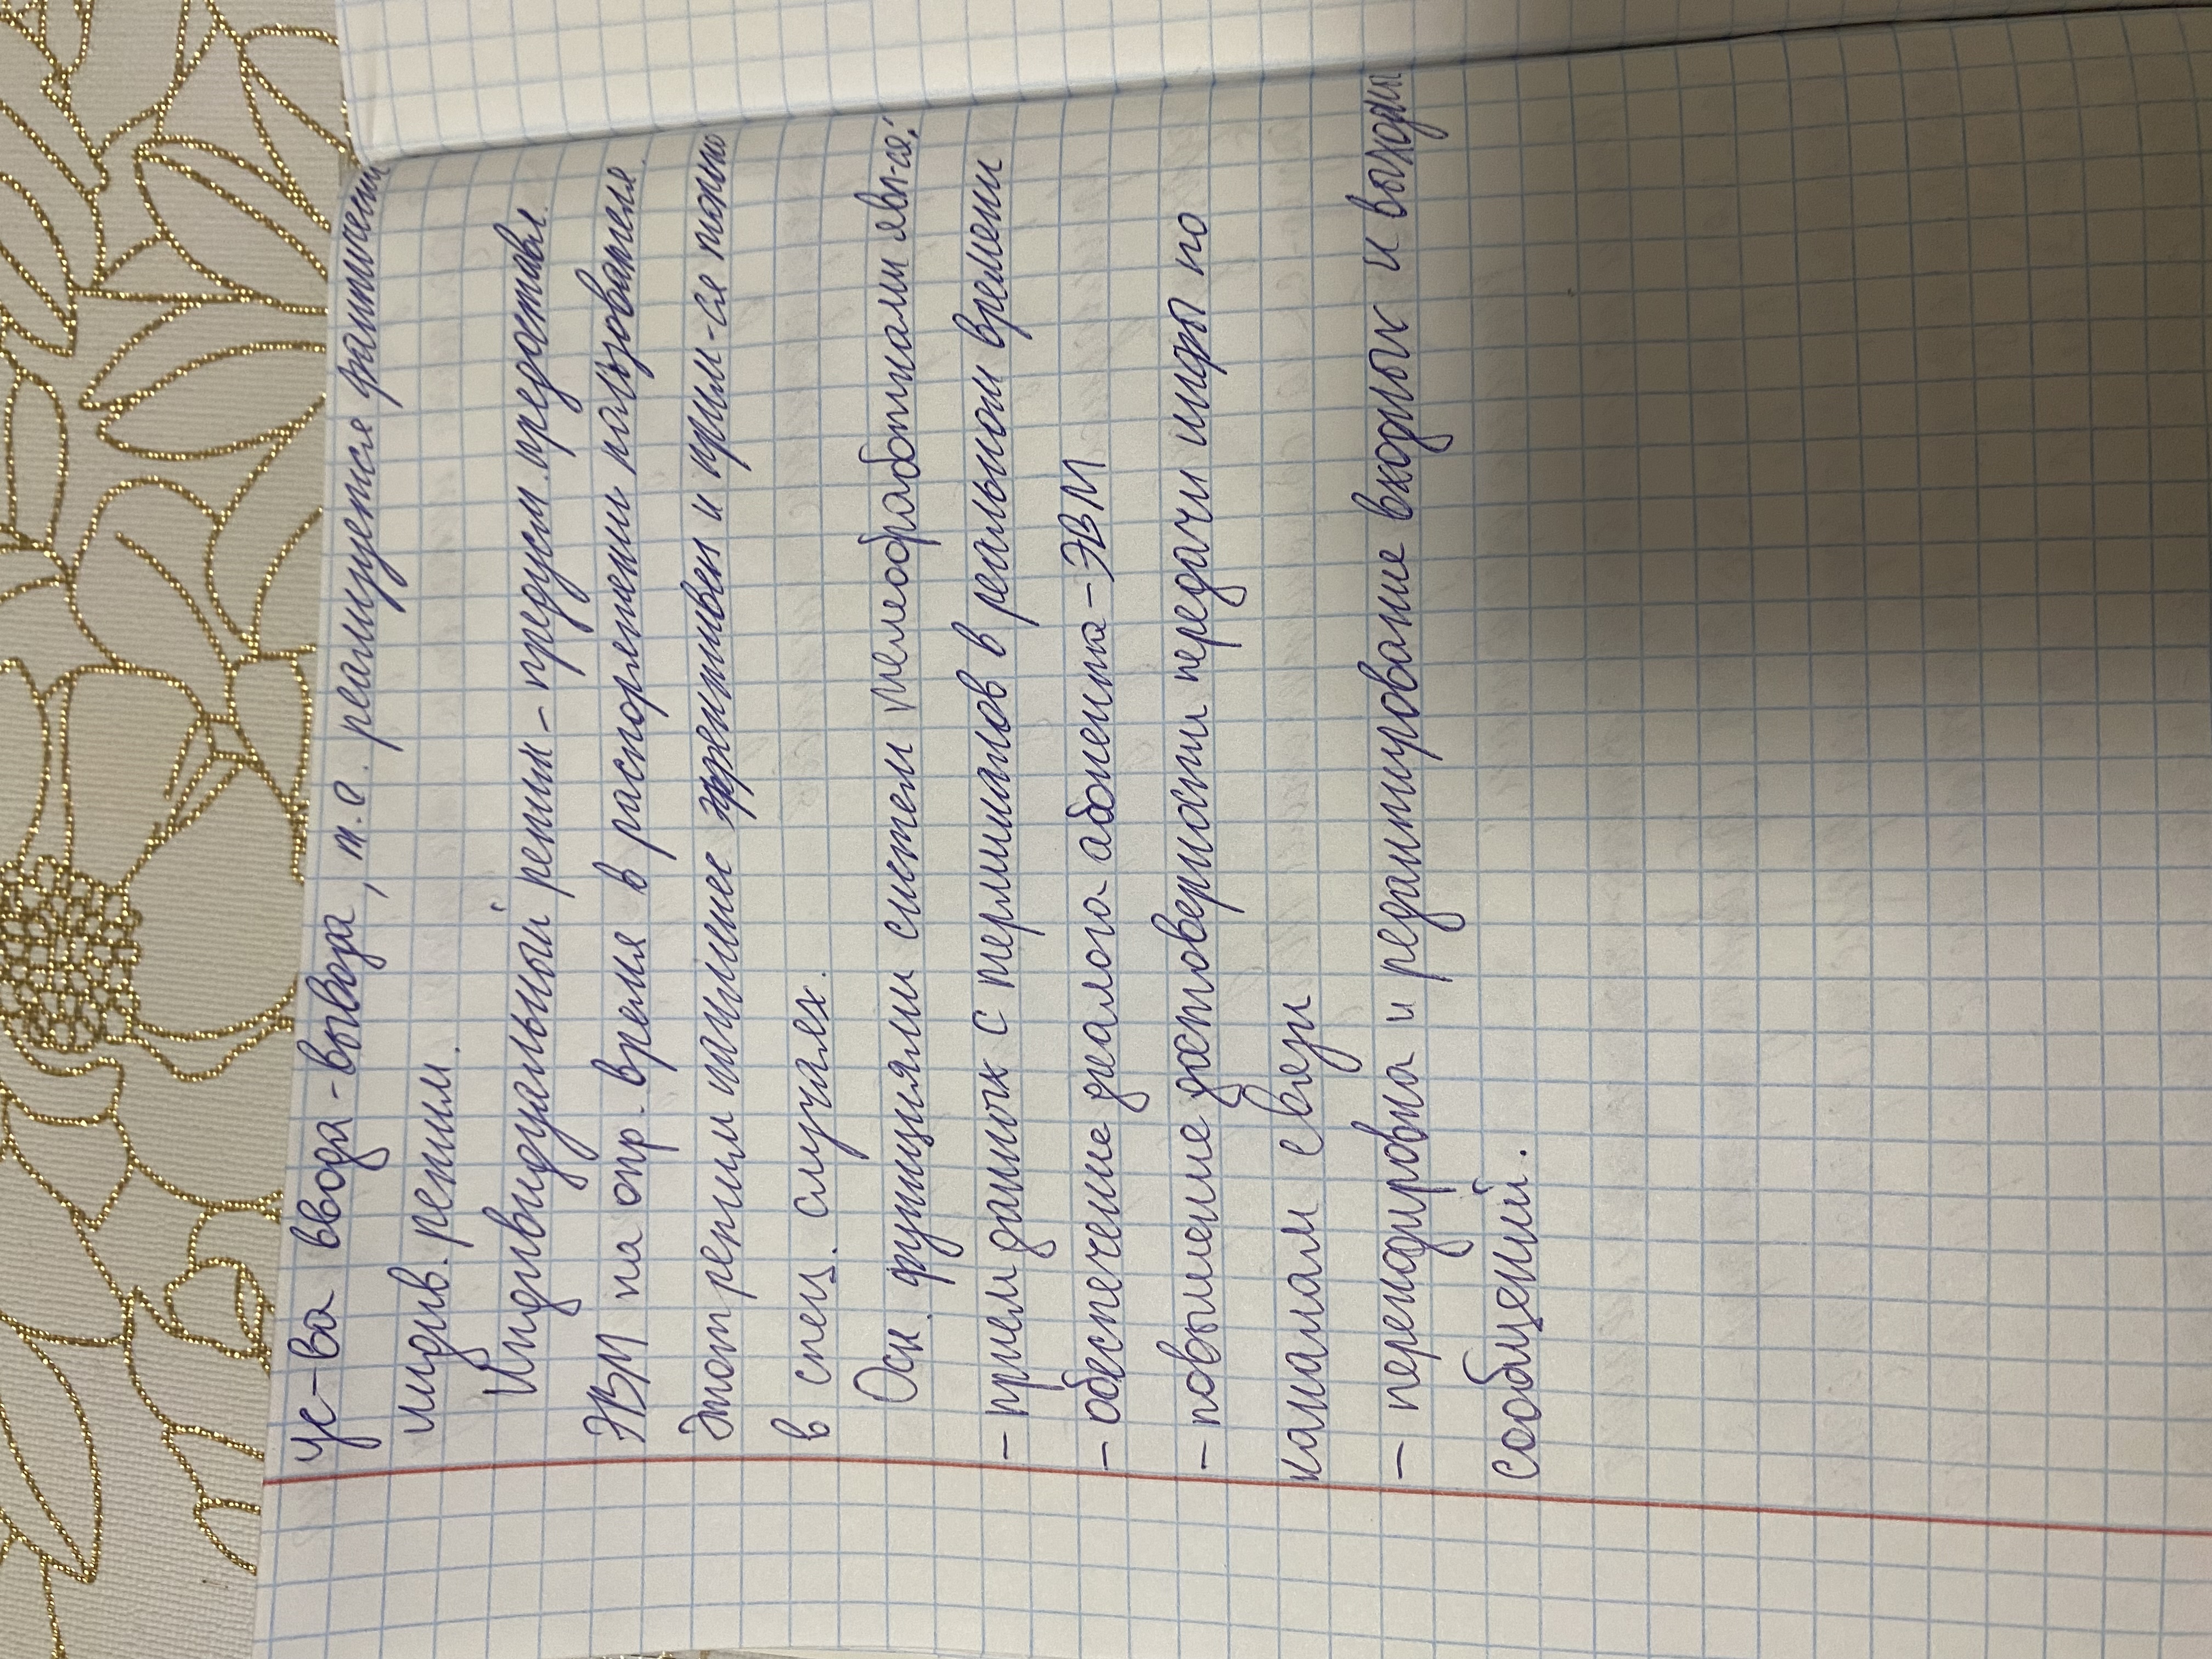 ус-ва ввода-вывода, т.е. реализуется фактически
индив. режим.
Индивидуальный режим - предусм. предоставл.
ЭВМ на опр. время в распоряжении пользователя.
Этот режим наименее эффективен и прим-ся только
в спец. случаях.
Осн. функциями систем телеобработками явл-ся:
- прием данных с терминалов в реальном времени
- обеспечение диалога абонента - ЭВМ
- повышение достоверности передачи инфы по
каналам связи
- перекодировка и редактирование входных и выходных
сообщений.